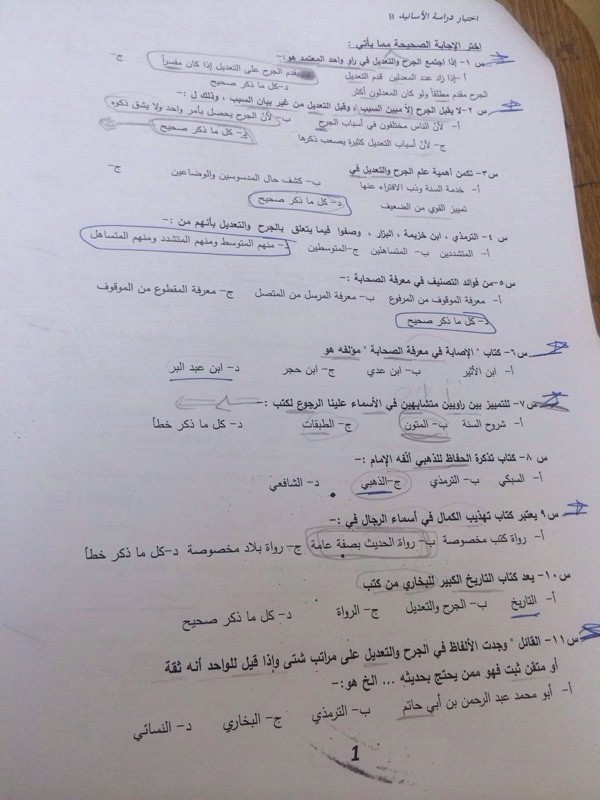 اختبار دراسة الأسانيد B
اختر الإجابة الصحيحة مما يأتي :
س ١- إذا اجتمع الجرح والتعديل في راو واحد المعتمد هو:-
أ-إذا زاد عدد المعدلين قدم التعديل ب- يقدم الجرح على التعديل إذا كان مفسراً ج-
الجرح مقدم مطلقاً ولو كان المعدلون أكثر د-كل ما ذكر صحيح
س ٢-لا يقبل الجرح إلا مبين السبب ، وقبل التعديل من غير بيان السبب ، وذلك ل :-
أ- لأن الناس مختلفون في أسباب الجرح ب- لأن الجرح يحصل بأمر واحد ولا يشق ذكره
ج- لأن أسباب التعديل كثيرة يصعب ذكرها د- كل ما ذكر صحيح
س٣- تكمن أهمية علم الجرح والتعديل في
أ- خدمة السنة وذب الافتراء عنها ب- كشف حال المدسوسين والوضاعين ج-
تمييز القوي من الضعيف د- كل ما ذكر صحيح
س ٤- الترمذي ، ابن خزيمة ، البزار ، وصفوا فيما يتعلق بالجرح والتعديل بأنهم من :-
أ- المتشددين ب- المتساهلين ج-المتوسطين د- منهم المتوسط ومنهم المتشدد ومنهم المتساهل
س٥-من فوائد التصنيف في معرفة الصحابة :-
أ- معرفة الموقوف من المرفوع ب- معرفة المرسل من المتصل ج- معرفة المقطوع من الموقوف
د- كل ما ذكر صحيح
س٦- كتاب " الإصابة في معرفة الصحابة " مؤلفه هو
أ- ابن الأثير ب- ابن عدي ج- ابن حجر د- ابن عبد البر
س٧- للتمييز بين راويين متشابهين في الأسماء علينا الرجوع لكتب :-
أ- شروح السنة ب- المتون ج- الطبقات د- كل ما ذكر خطأ
س ٨- كتاب تذكرة الحفاظ للذهبي ألفه الإمام :-
أ- السبكي ب- الترمذي ج-الذهبي د- الشافعي
س٩ يعتبر كتاب تهذيب الكمال في أسماء الرجال في :-
أ- رواة كتب مخصوصة ب- رواة الحديث بصفة عامة ج- رواة بلاد مخصوصة د-كل ما ذكر خطأ
س١٠- يعد كتاب التاريخ الكبير للبخاري من كتب
أ- التاريخ ب- الجرح والتعديل ج- الرواة د- كل ما ذكر صحيح
س١١- القائل " وجدت الألفاظ في الجرح والتعديل على مراتب شتى وإذا قيل للواحد أنه ثقة
أو متقن ثبت فهو ممن يحتج بحديثه ... الخ هو:-
أ- أبو محمد عبد الرحمن بن أبي حاتم ب- الترمذي ج- البخاري د- النسائي
1